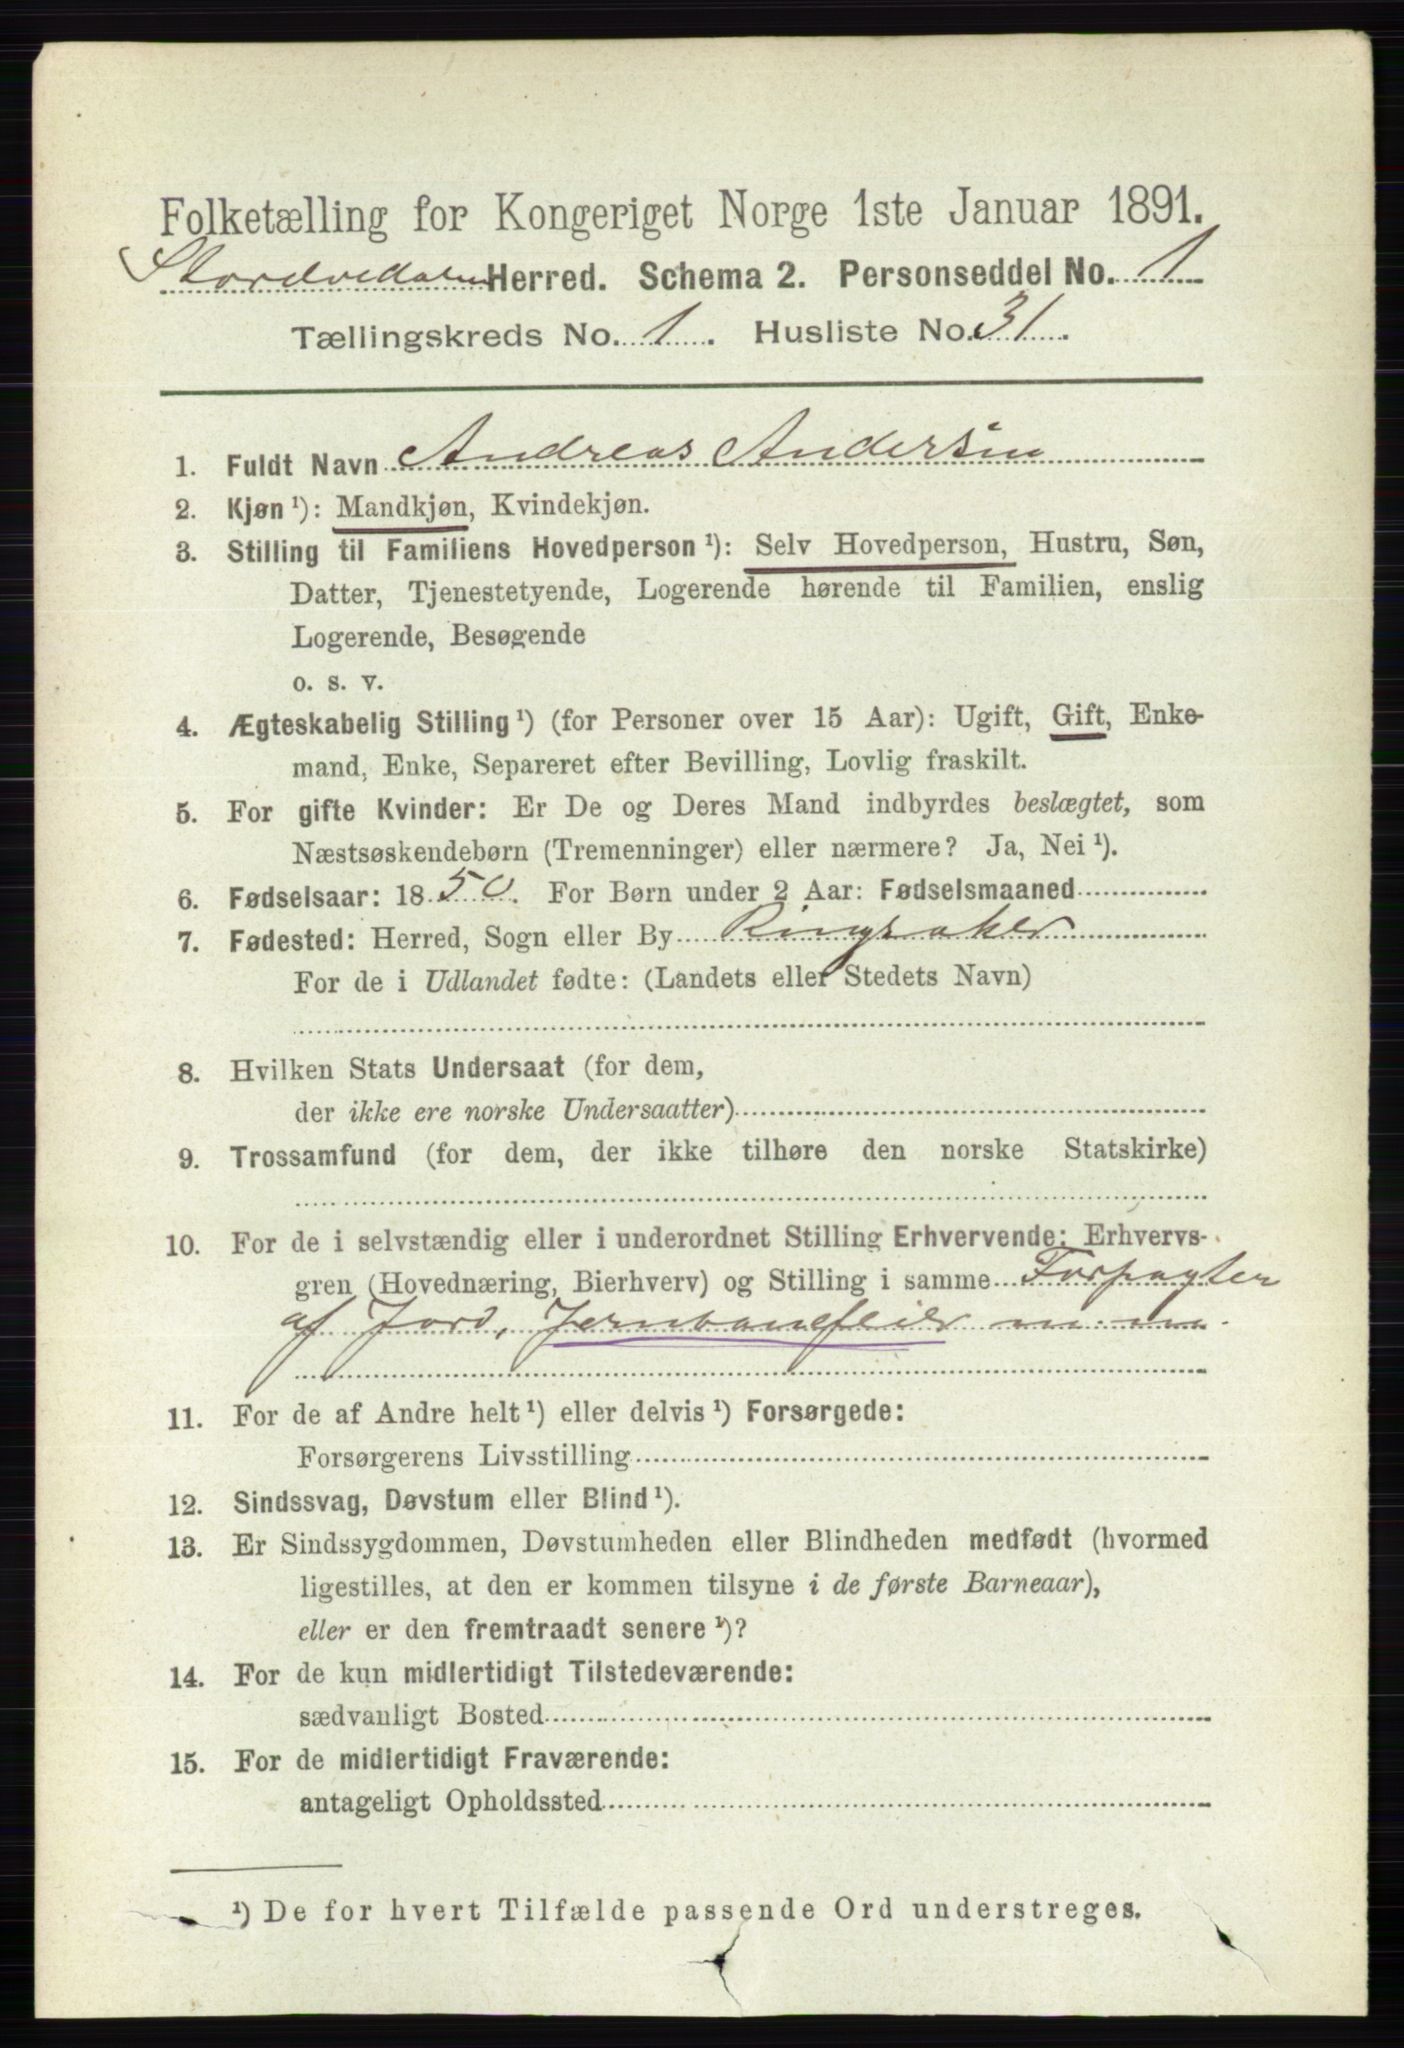 Folketælling for Kongeriget Norge 1ste Januar 1891.
Herred. Schema 2. Personseddel No. 1
Tællingskreds No. 1. Husliste No. 31.
1. Fuldt Navn Andreas Andersen
2. Kjøn ¹): Mandkjøn, Kvindekjøn.
3. Stilling til Familiens Hovedperson ¹): Selv Hovedperson, Hustru, Søn,
Datter, Tjenestetyende, Logerende hørende til Familien, enslig
Logerende, Besøgende
o. s. v.
4. Ægteskabelig Stilling ¹) (for Personer over 15 Aar): Ugift, Gift, Enke-
mand, Enke, Separeret efter Bevilling, Lovlig fraskilt.
5. For gifte Kvinder: Er De og Deres Mand indbyrdes beslægtet, som
Næstsøskendebørn (Tremenninger) eller nærmere? Ja, Nei ¹).
6. Fødselsaar: 1850. For Børn under 2 Aar: Fødselsmaaned
7. Fødested: Herred, Sogn eller By Ringsaker
For de i Udlandet fødte: (Landets eller Stedets Navn)
8. Hvilken Stats Undersaat (for dem,
der ikke ere norske Undersaatter)
9. Trossamfund (for dem, der ikke tilhøre den norske Statskirke)
10. For de i selvstændig eller i underordnet Stilling Erhvervende: Erhvervs-
gren (Hovednæring, Bierhverv) og Stilling i samme Forpagter
af Jord, m. m.
11. For de af Andre helt ¹) eller delvis ¹) Forsørgede:
Forsørgerens Livsstilling
12. Sindssvag, Døvstum eller Blind ¹).
13. Er Sindssygdommen, Døvstumheden eller Blindheden medfødt (hvormed
ligestilles, at den er kommen tilsyne i de første Barneaar),
eller er den fremtraadt senere ¹)?
14. For de kun midlertidigt Tilstedeværende:
sædvanligt Bosted
15. For de midlertidigt Fraværende:
antageligt Opholdssted
¹) De for hvert Tilfælde passende Ord understreges.